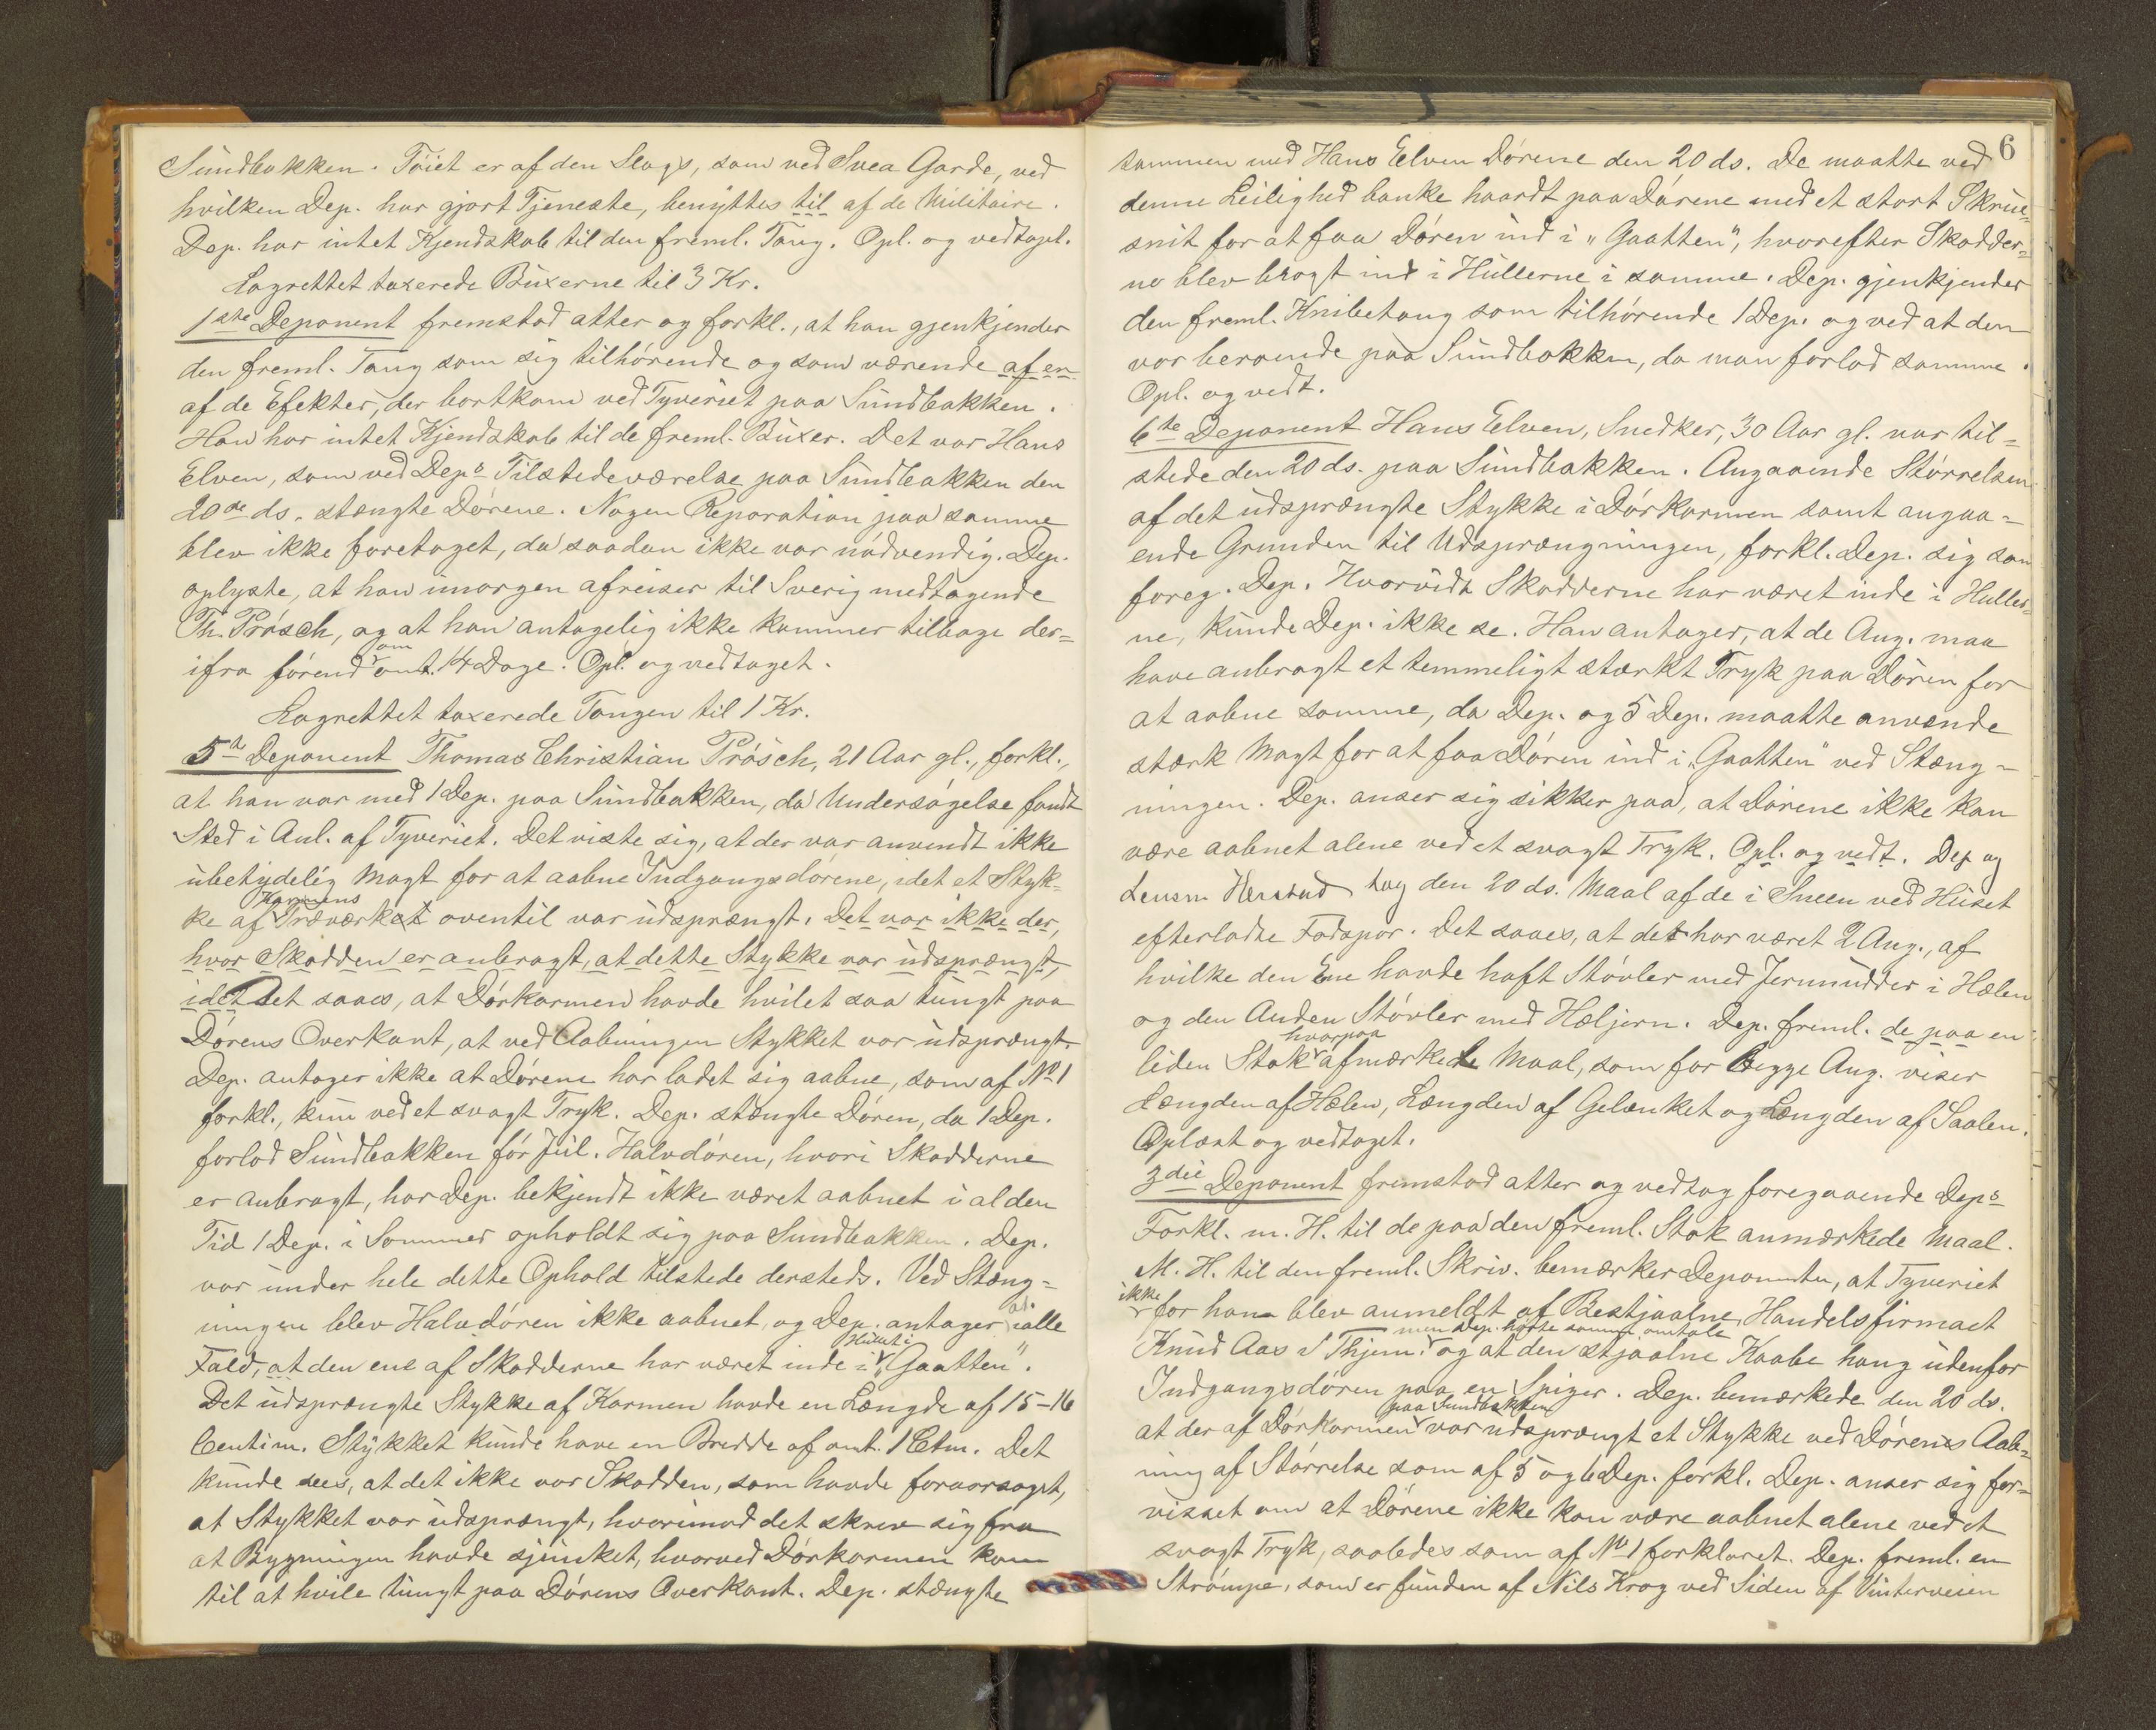 Sundbakken. Töiet er af den Slags, som ved Svea Garde, ved
hvilken Dep. har gjort Tjeneste, benyttes til af de Militaire.
Dep. har intet Kjendskab til den freml. Tang. Opl. og vedtagt.
Lagrettet taxerede Buxerne til 3 Kr.
1ste Deponent fremstod atter og forkl., at han gjenkjender
den freml. Tang som sig tilhörende og som værende af en
af de Efekter, der bortkom ved Tyveriet paa Sundbakken.
Han har intet Kjendskab til de freml. Buxer. Det var Hans
Elven, som ved Deps Tilstedeværelse paa Sundbakken den
20de ds. stængte Dörene. Nogen Reparation paa samme
blev ikke foretaget, da saadan ikke var nödvendig. Dep.
oplyste, at han imorgen afreiser til Sverig medtagende
Th. Prösch, og at han antagelig ikke kommer tilbage der=
ifra förend om omt. 14 Dage. Opl. og vedtaget.
Lagrettet taxerede Tangen til 1 Kr.
5te Deponent Thomas Christian Prösch, 21 Aar gl., forkl.,
at han var med 1 Dep. paa Sundbakken, da Undersögelse fandt
Sted i Anl. af Tyveriet. Det viste sig, at der var anvendt ikke
ubetydelig Magt for at aabne Indgangsdörene, idet et Styk=
ke af Karmens Træværket oventil var udsprængt. Det var ikke der,
hvor Skodden er anbragt, at dette Stykke var udsprængt,
idet Det saaes, at Dörkarmen havde hvilet saa tungt paa
Dörens Overkant, at ved Aabningen Stykket var udsprængt.
Dep. antager ikke at Dörene har ladet sig aabne, som af No 1
forkl., kun ved et svagt Tryk. Dep. stængte Dören, da 1 Dep.
forlod Sundbakken för Jul. Halvdören, hvori Skodderne
er anbragt, har Dep. bekjendt ikke været aabnet i al den
Tid 1 Dep. i Sommer opholdt sig paa Sundbakken. Dep.
var under hele dette Ophold tilstede dersteds. Ved Stæng=
ningen blev Halvdören ikke aabnet, og Dep. antager at i alle
Fald, at den ene af Skodderne har været inde i Hullet i "Gaatten".
Det udsprængte Stykke af Karmen havde en Længde af 15–16
Centim. Stykket kunde have en Bredde af omt. 1 Ctm. Det
kunde sees, at det ikke var Skodden, som havde foraarsaget,
at Stykket var udsprængt, hvorimod det skrev sig fra
at Bygningen havde sjunket, hvorved Dörkarmen kom
til at hvile tungt paa Dörens Overkant. Dep. stængte
6
sammen med Hans Elven Dörene den 20 ds. De maatte ved
denne Leilighed banke haardt paa Dörene med et stort Skrue=
snit for at faa Dören ind i "Gaatten", hvorefter Skodder=
ne blev bragt ind i Hullerne i samme. Dep. gjenkjender
den freml. Knibetang som tilhörende 1 Dep. og ved at den
var beroende paa Sundbakken, da man forlod samme.
Opl. og vedt.
6te Deponent Hans Elven, Snedker, 30 Aar gl. var til=
stede den 20 ds. paa Sundbakken. Angaaende Störrelsen
af det udsprængte Stykke i Dörkarmen samt angaa=
ende Grunden til Udsprængningen, forkl. Dep. sig som
foreg. Dep. Hvorvidt Skodderne har været inde i Huller=
ne, kunde Dep. ikke se. Han antager, at de Ang. maa
have anbragt et temmeligt stærkt Tryk paa Dören for
at aabne samme, da Dep. og 5 Dep. maatte anvende
stærk Magt for at faa Dören ind i "Gaatten" ved Stæng=
ningen. Dep. anser sig sikker paa, at Dörene ikke kan
være aabnet alene ved et svagt Tryk. Opl. og vedt. Dep og
Lensm. Herstad tog den 20 ds. Maal af de i Sneen ved Huset
efterladte Fodspor. Det saaes, at det har været 2 Ang., af
hvilke den Ene havde haft Stövler med Jernnudder i Hælen
og den Anden Stövler med Hæljern. Dep. freml. de paa en
liden Stok hvorpaa afmærkede Maal, som for Begge Ang. viser
Længden af Hælen, Længden af Gelænket og Længden af Saalen.
Oplæst og vedtaget.
3die Deponent fremstod atter og vedtog foregaaende Deps
Forkl. m. H. til de paa den freml. Stok anmærkede Maal.
M. H. til den freml. Skriv. bemærker Deponenten, at Tyveriet
ikke for ham blev anmeldt af Bestjaalne, Handelsfirmaet
Knud Aas & Thjem. men Dep. hörte samme omtale og at den stjaalne Kaabe hang udenfor
Indgangsdören paa en Spiger. Dep. bemærkede den 20 ds.
at der af Dörkarmen paa Sundbakken var udsprængt et Stykke ved Dörenes Aab=
ning af Störrelse som af 5 og 6 Dep. forkl. Dep. anser sig for=
visset om at Dörene ikke kan være aabnet alene ved et
svagt Tryk, saaledes som af No 1 forklaret. Dep. freml. en
Strömpe, som er funden af Nils Krog ved Siden af Vinterveien